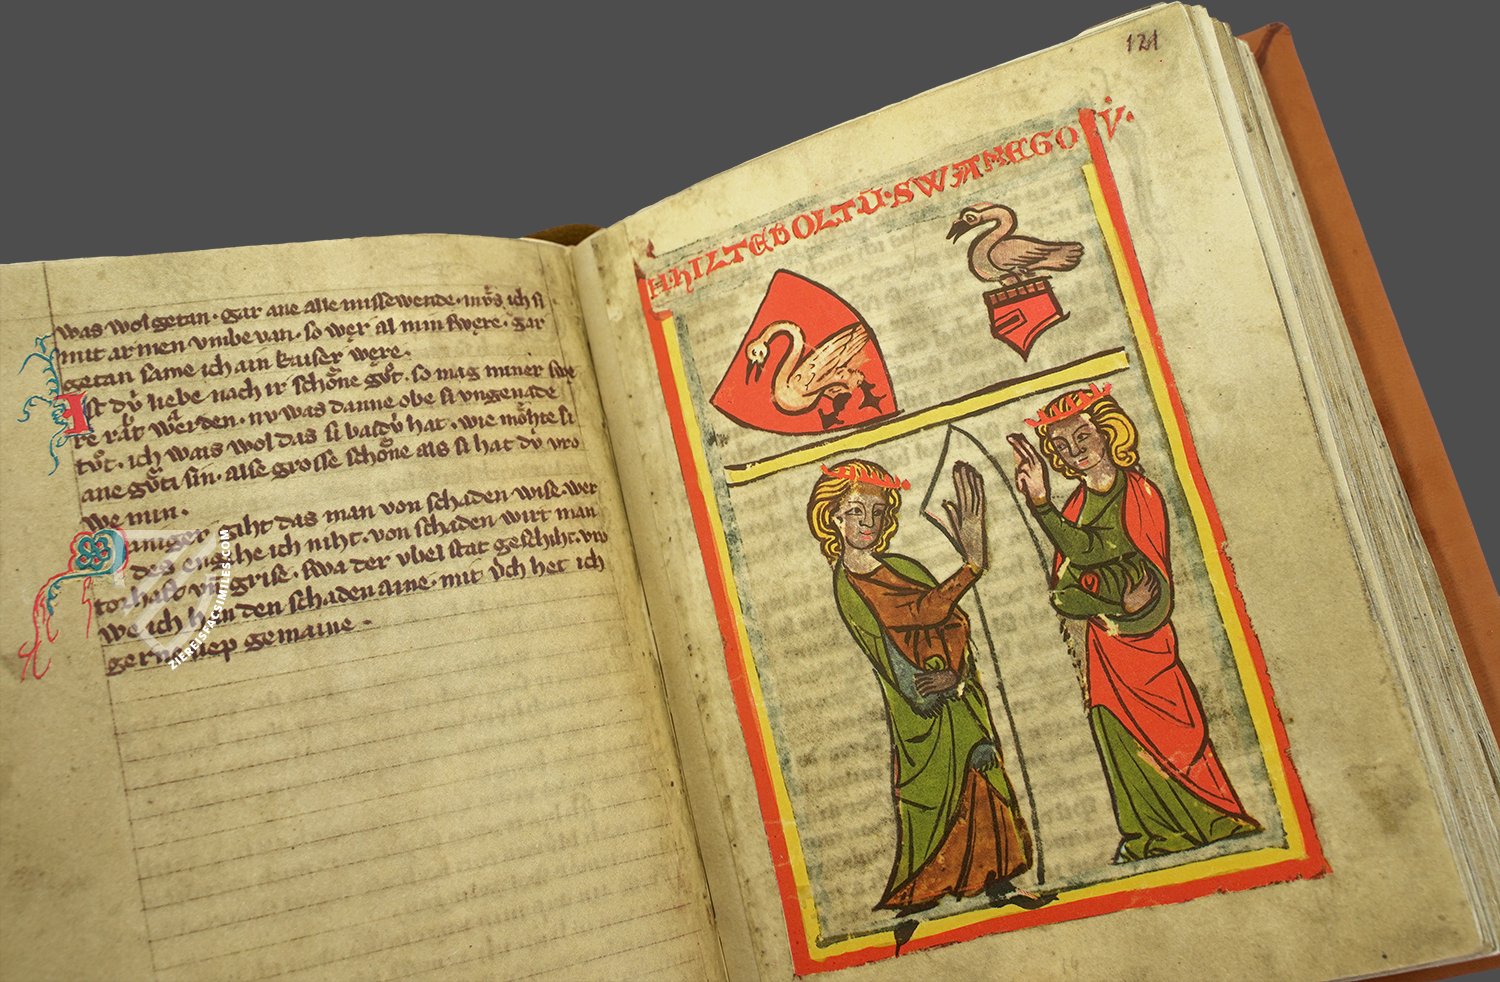 was wol getan. gar ane alle missewende. mͮs ich si
mit armen vmbe van. so wer al min swere. gar
getan same ich ain kaiser were.
Ist dv́ liebe nach ir schoͤne gvͦt. so mag miner swe
re rat werden. nv was danne obe si vngenade
tvͦt. ich wais wol das si baidv́ hat. wie moͤhte si
ane gvͤti sin. alse grosse schoͤne als si hat dv́ vro
we min.
Maniger giht das man von schaden wise wer
de. des engihe ich niht. von schaden wirt man
torhaft vnͥ grise. swa der vbel stat geschiht. vro
we ich han den schaden aine. mit v́ch het ich
gerne liep gemaine.
121
H·HILTEBOLT U·SWANEGOͮV·
ZIEREISFACSIMILES.COM